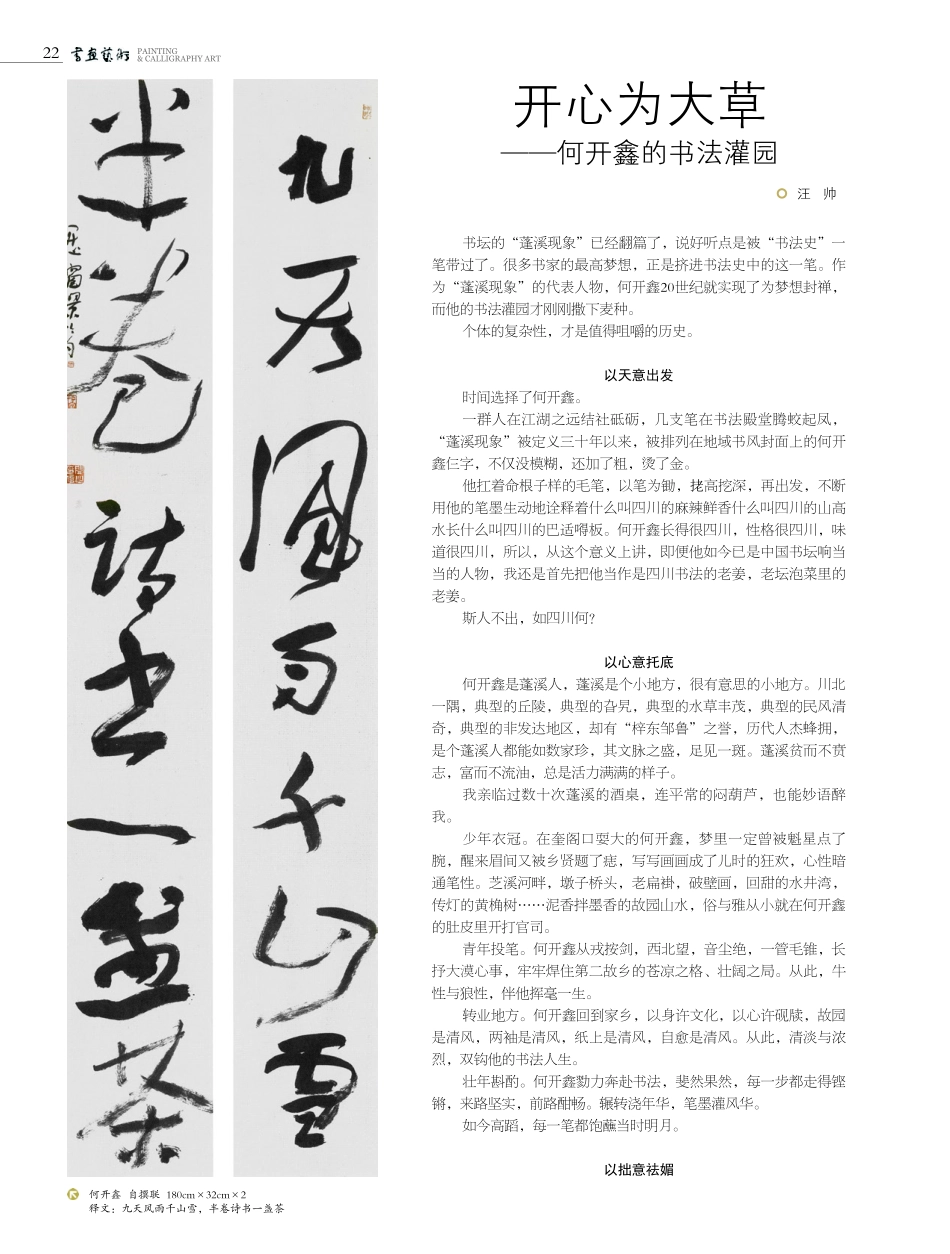 22 书画艺术 PAINTING
& CALLIGRAPHY ART
九天風雨千山雪
半卷詩書一盏茶
何开鑫 自撰联 180cm×32cm×2
释文：九天风雨千山雪，半卷诗书一盏茶
开心为大草
——何开鑫的书法灌园
汪 帅
书坛的“蓬溪现象”已经翻篇了，说好听点是被“书法史”一
笔带过了。很多书家的最高梦想，正是挤进书法史中的这一笔。作
为“蓬溪现象”的代表人物，何开鑫20世纪就实现了为梦想封禅，
而他的书法灌园才刚刚撒下麦种。
个体的复杂性，才是值得咀嚼的历史。
以天意出发
时间选择了何开鑫。
一群人在江湖之远结社砥砺，几支笔在书法殿堂腾蛟起凤，
“蓬溪现象”被定义三十年以来，被排列在地域书风封面上的何开
鑫仨字，不仅没模糊，还加了粗，烫了金。
他扛着命根子样的毛笔，以笔为锄，㧯高挖深，再出发，不断
用他的笔墨生动地诠释着什么叫四川的麻辣鲜香什么叫四川的山高
水长什么叫四川的巴适嘚板。何开鑫长得很四川，性格很四川，味
道很四川，所以，从这个意义上讲，即便他如今已是中国书坛响当
当的人物，我还是首先把他当作是四川书法的老姜，老坛泡菜里的
老姜。
斯人不出，如四川何？
以心意托底
何开鑫是蓬溪人，蓬溪是个小地方，很有意思的小地方。川北
一隅，典型的丘陵，典型的旮旯，典型的水草丰茂，典型的民风清
奇，典型的非发达地区，却有“梓东邹鲁”之誉，历代人杰蜂拥，
是个蓬溪人都能如数家珍，其文脉之盛，足见一斑。蓬溪贫而不贲
志，富而不流油，总是活力满满的样子。
我亲临过数十次蓬溪的酒桌，连平常的闷葫芦，也能妙语醉
我。
少年衣冠。在奎阁口耍大的何开鑫，梦里一定曾被魁星点了
腕，醒来眉间又被乡贤题了痣，写写画画成了儿时的狂欢，心性暗
通笔性。芝溪河畔，墩子桥头，老扁褂，破壁画，回甜的水井湾，
传灯的黄桷树……泥香拌墨香的故园山水，俗与雅从小就在何开鑫
的肚皮里开打官司。
青年投笔。何开鑫从戎按剑，西北望，音尘绝，一管毛锥，长
抒大漠心事，牢牢焊住第二故乡的苍凉之格、壮阔之局。从此，牛
性与狼性，伴他挥毫一生。
转业地方。何开鑫回到家乡，以身许文化，以心许砚牍，故园
是清风，两袖是清风，纸上是清风，自愈是清风。从此，清淡与浓
烈，双钩他的书法人生。
壮年斟酌。何开鑫勠力奔赴书法，斐然果然，每一步都走得铿
锵，来路坚实，前路酣畅。辗转浇年华，笔墨灌风华。
如今高蹈，每一笔都饱蘸当时明月。
以拙意祛媚